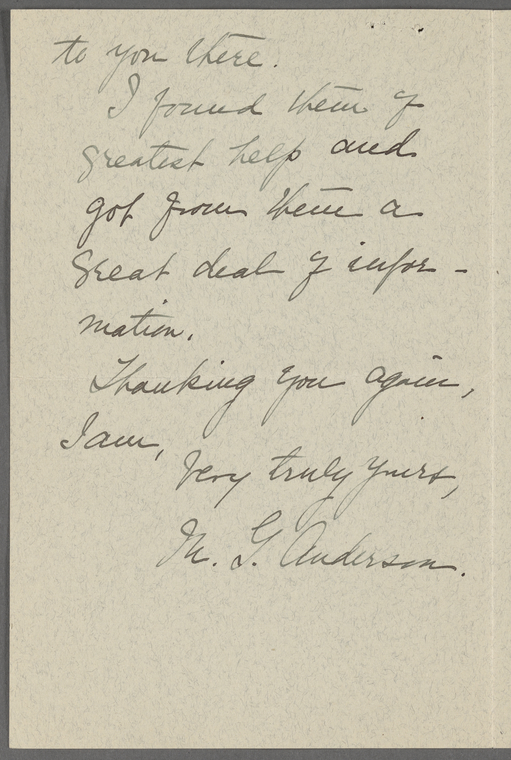 to you there.
I found them of
greatest help and
got from them a
great deal of infor-
mation.
Thanking you again,
I am,
Very truly yours,
M. G. Anderson.